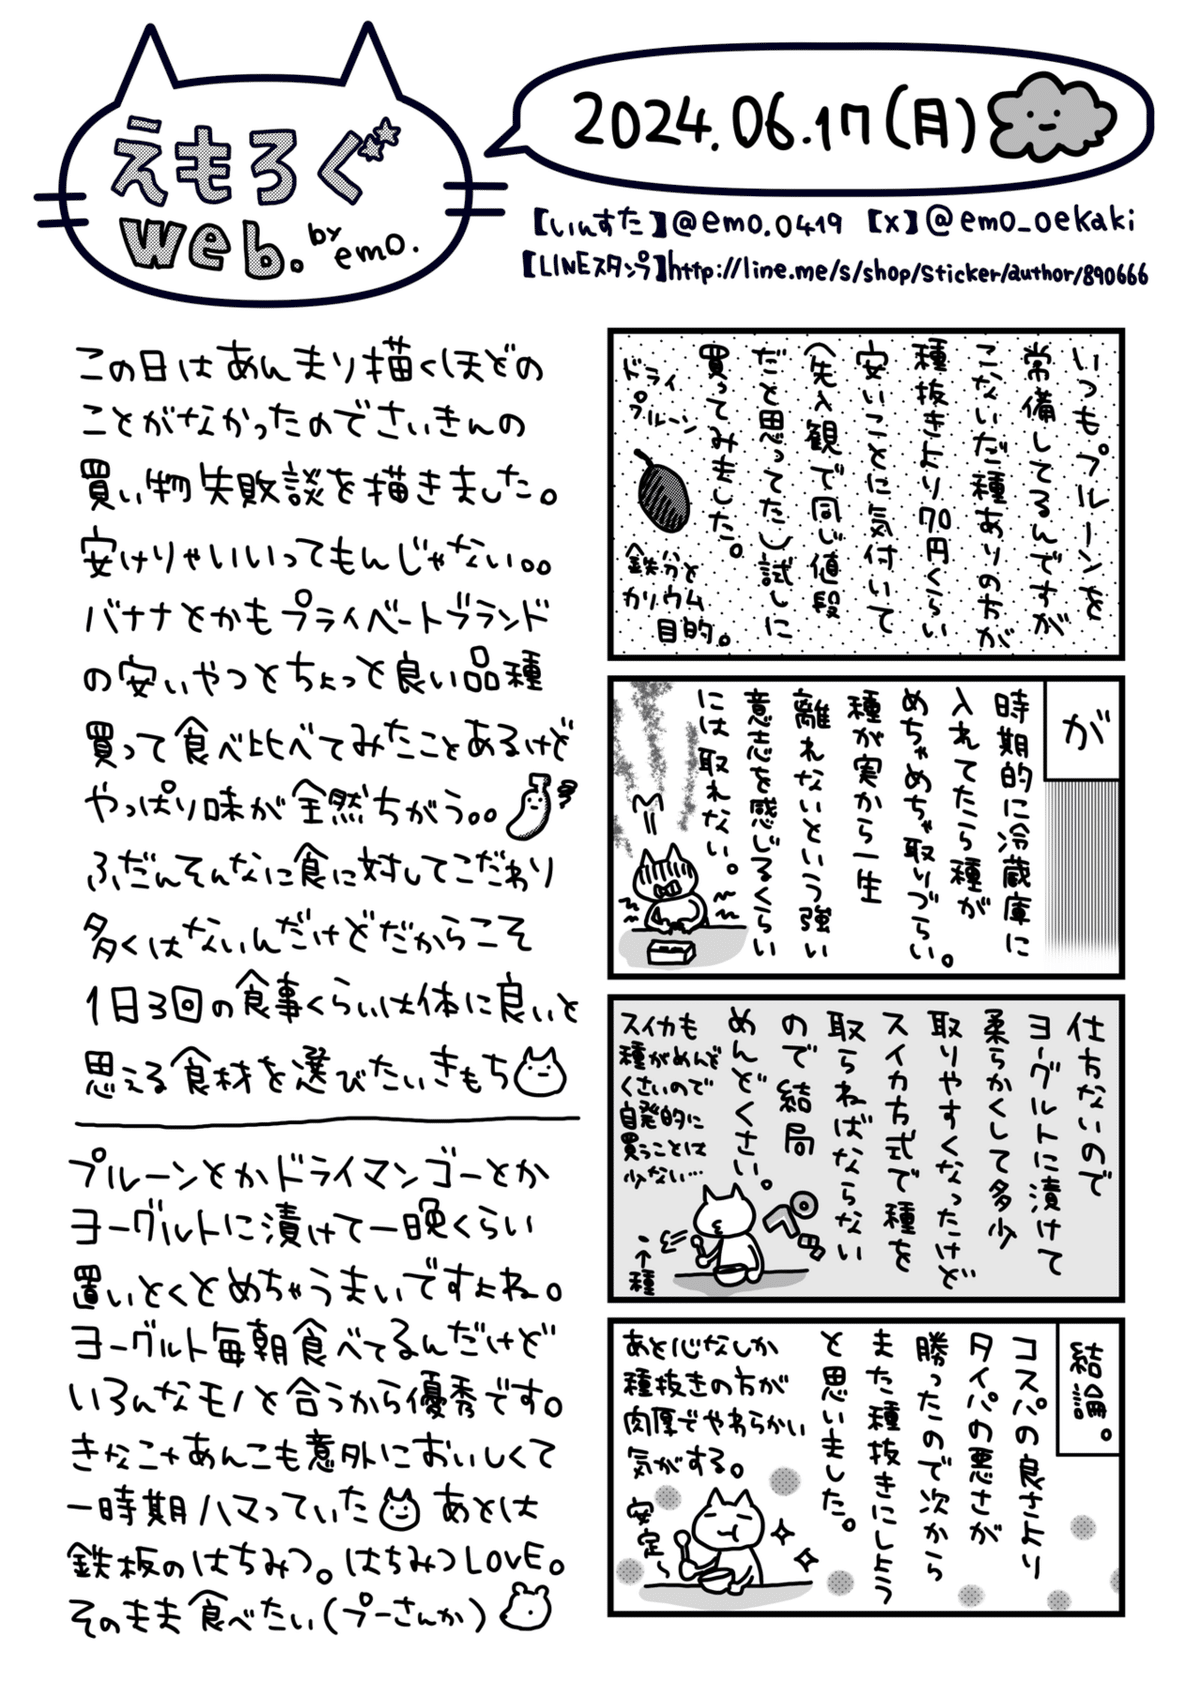 えもろぐ
web. by emo.
2024.06.17(月)
【いんすた】@emo.0419 【X】@emo_oekaki
【LINEスタンプ】http://line.me/s/shop/sticker/author/890666
この日はあんまり描くほどの
ことがなかったのでさいきんの
買い物失敗談を描きました。
安けりゃいいってもんじゃない。。
バナナとかもプライベートブランド
の安いやつとちょっと良い品種
買って食べ比べてみたことあるけど
やっぱり味が全然ちがう。。
ふだんそんなに食に対してこだわり
多くはないんだけどだからこそ
1日3回の食事くらいは体に良いと
思える食材を選びたいきもち
プルーンとかドライマンゴーとか
ヨーグルトに漬けて一晩くらい
置いとくとめちゃうまいですよね。
ヨーグルト毎朝食べてるんだけど
いろんなモノと合うから優秀です。
きなことあんこも意外においしくて
一時期ハマっていた あとは
鉄板のはちみつ。はちみつLOVE。
そのまま食べたい(プーさんか)
いつもプルーンを
常備してるんですが
こないだ種ありの方が
種抜きより70円くらい
安いことに気付いて
(先入観で同じ値段
だと思ってた)試しに
買ってみました。
ドライ
プルーン
鉄分と
カリウム
目的。
が
時期的に冷蔵庫に
入れてたら種が
めちゃめちゃ取りづらい。
種が実から一生
離れないという強い
意志を感じるくらい
には取れない。
仕方ないので
ヨーグルトに漬けて
柔らかくして多少
取りやすくなったけど
スイカ方式で種を
取らねばならない
ので結局
めんどくさい。
スイカも
種がめんど
くさいので
自発的に
買うことは
少ない…
ペッ
↑種
結論。
コスパの良さより
タイパの悪さが
勝ったので次から
また種抜きにしよう
と思いました。
あと心なしか
種抜きの方が
肉厚でやわらかい
気がする。
安定〜